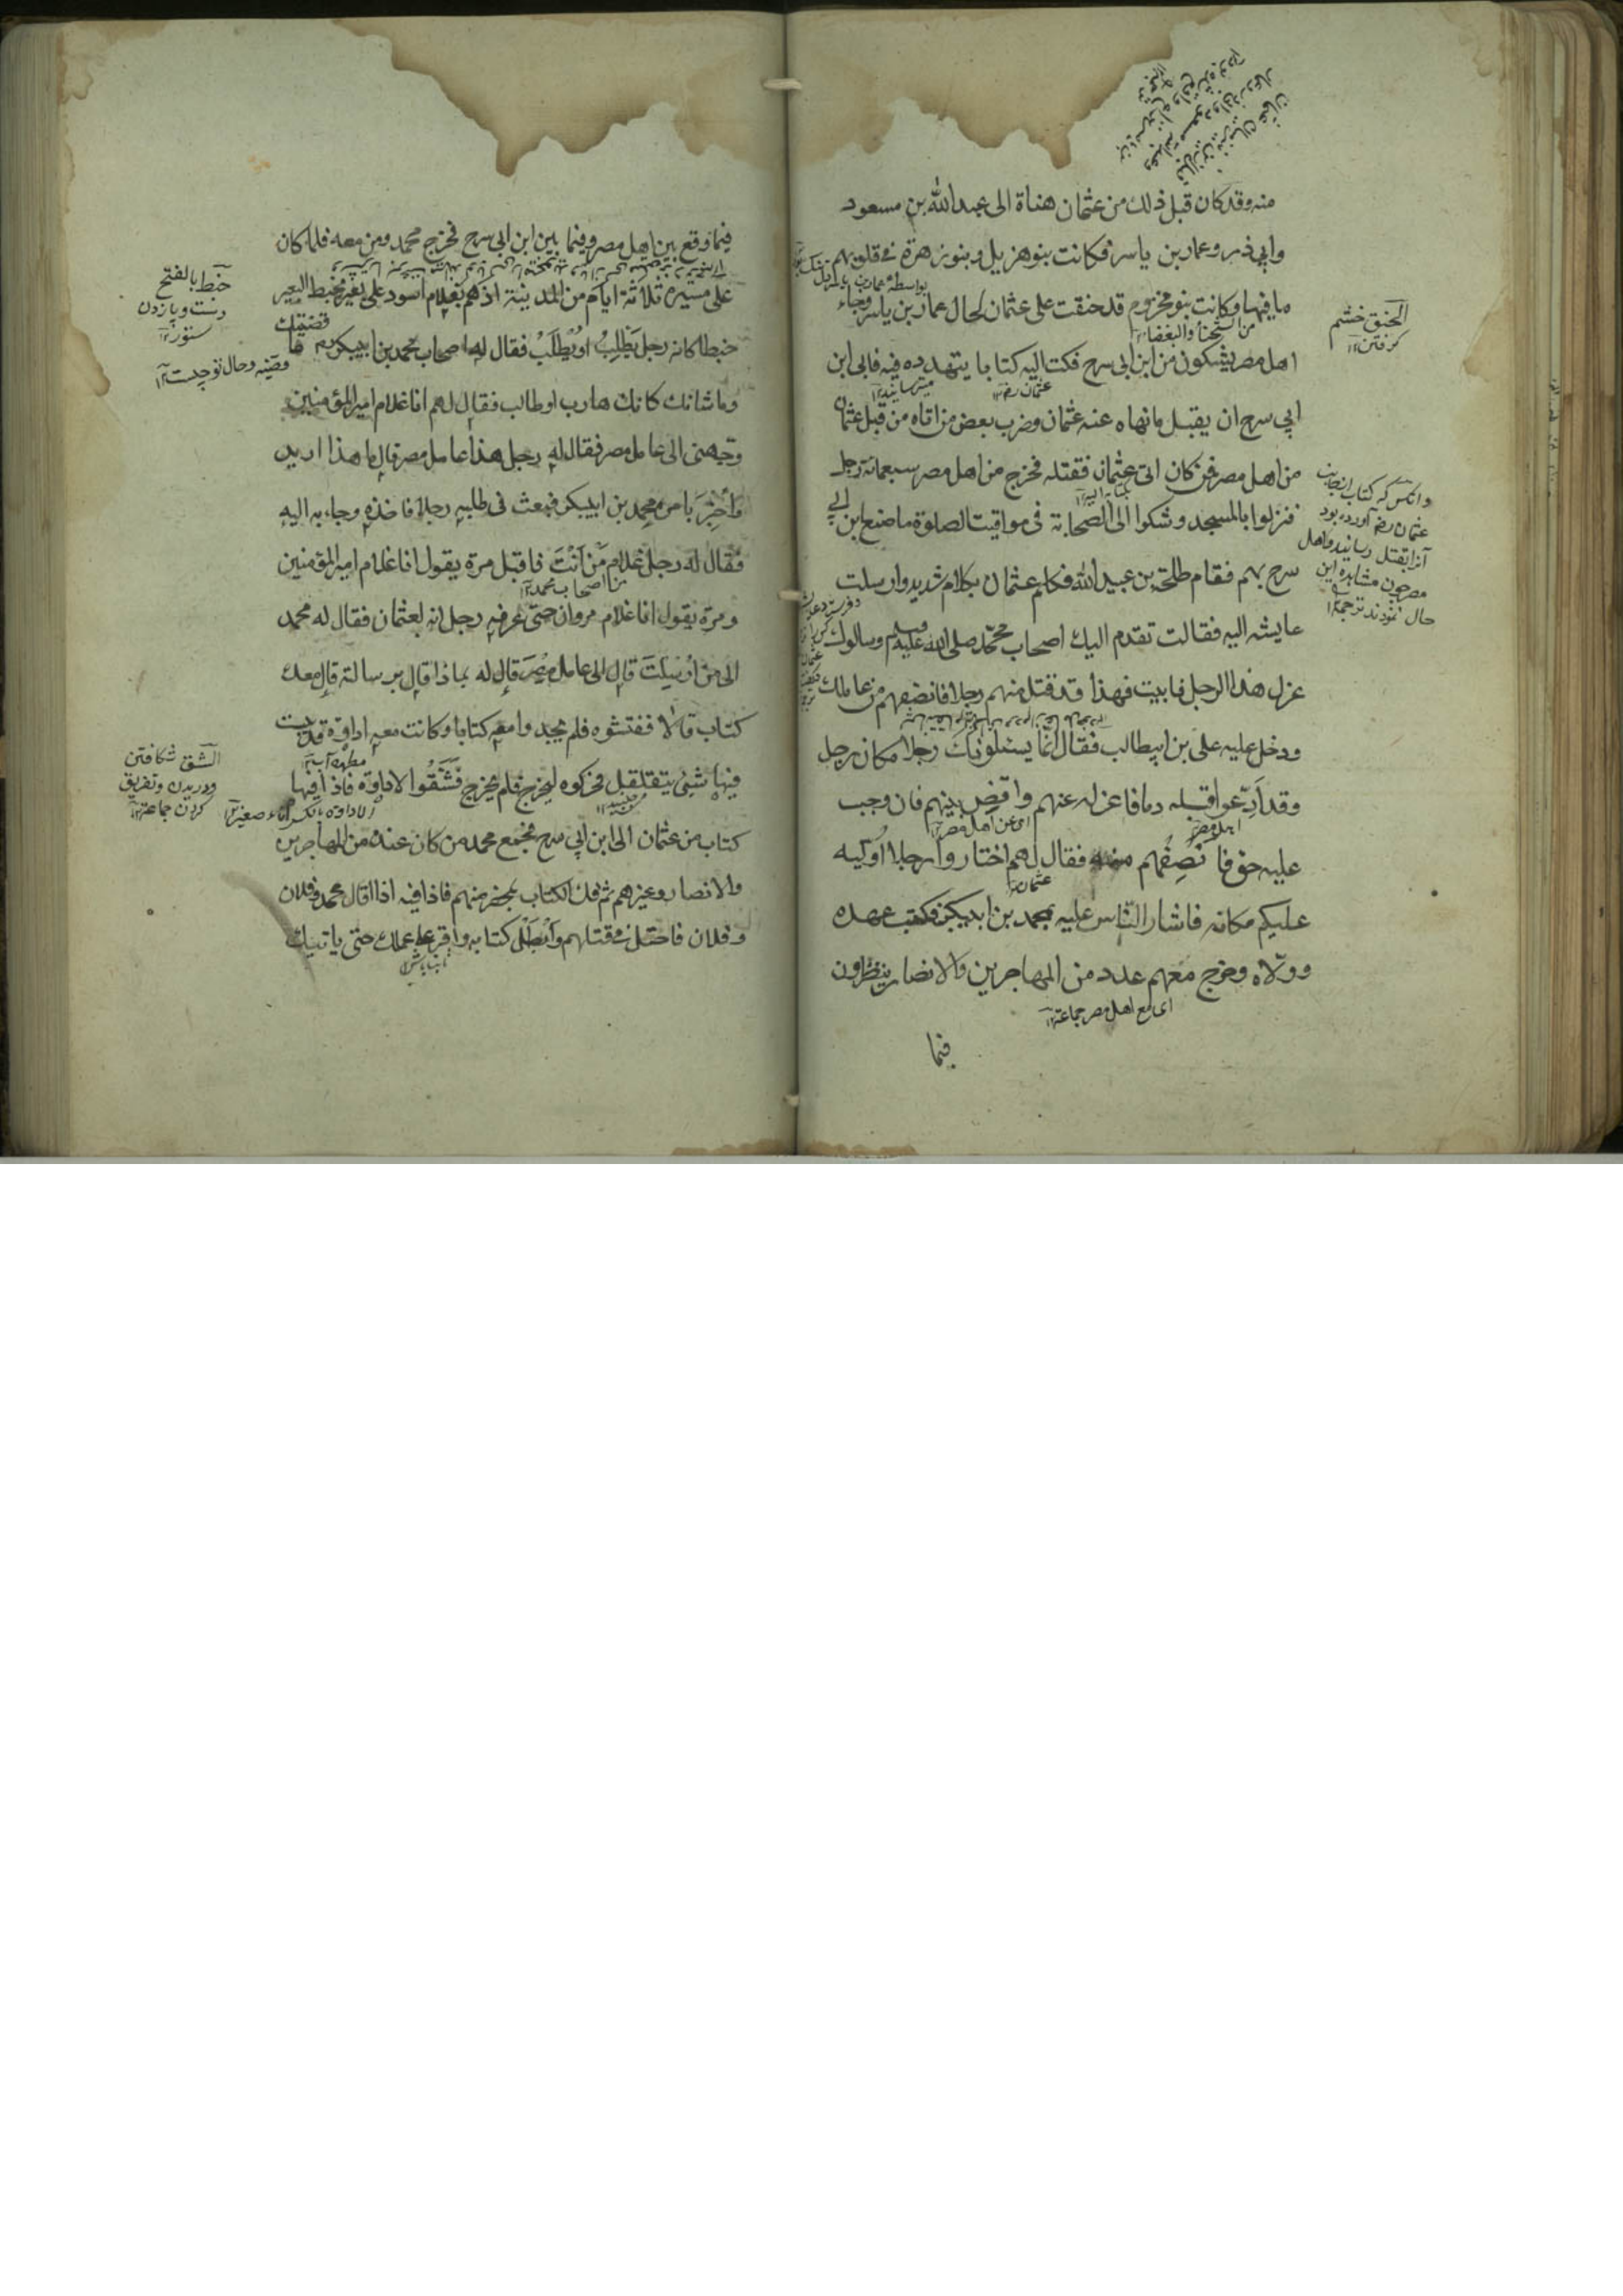 منه وقد كان قبل ذلك من عثمان هناة الى عبد الله بن مسعود
وابي ذر وعمار بن ياسر فكانت بنو هزيل وبنو زهرة في قلوبهم
ما فيها وكانت بنو مخزوم قد حنقت على عثمان لحال عمار بن ياسر وجاء
من الشحنا والبغضاء ١٢
اهل مصر يشكون من ابن ابي سرح فكتب اليه كتابا يتهدده فيه فابى ابن
عثمان رض ١٢
ابي سرح ان يقبل ما نهاه عنه عثمان وضرب بعض من اتاه من قبل عثمان
من اهل مصر فمن كان اتى عثمان فقتله فخرج من اهل مصر سبعمائة رجل
فنزلوا بالمسجد وشكوا الى الصحابة في مواقيت الصلوة ما صنع ابن ابي
سرح بهم فقام طلحة بن عبيد الله فكلم عثمان بكلام شديد وارسلت
عايشه اليه فقالت تقدم اليك اصحاب محمد صلى الله عليه وسلم وسالوك
عزل هذا الرجل فابيت فهذا قد قتل منهم رجلا فانصفهم من عاملك
ودخل عليه علي بن ابيطالب فقال انما يسئلونك رجلا مكان رجل
وقد ادعوا قبله دما فاعزله عنهم واقض بينهم فان وجب
اهل مصر
اى عن اهل مصر ١٢
عليه حق فانصفهم منه فقال لهم اختاروا رجلا اوليه
عثمان
عليكم مكانه فاشار الناس عليه بمحمد بن ابيبكر فكتب عهده
وولاه وخرج معهم عدد من المهاجرين والانصار ينظرون
اى مع اهل مصر جماعة ١٢
فيما
الحنق خشم
گرفتن ١٢
وانكس كه كتاب از جانب
عثمان رض آورده بود
آنرا بقتل رسانيد واهل
مصر چون مشاهده اين
حال نمودند ترجمه ١٢
فيما وقع بين اهل مصر وفيما بين ابن ابي سرح فخرج محمد ومن معه فلما كان
على مسيرة ثلاثة ايام من المدينة اذ هم بغلام اسود على بعير يخبط البعير
خبطا كانه رجل يطلب او يطلب فقال له اصحاب محمد بن ابيبكر رض ما قضيتك
وما شانك كانك هارب او طالب فقال لهم انا غلام امير المؤمنين
وجهني الى عامل مصر فقال له رجل هذا عامل مصر قال ما هذا اريد
واخبر بامره محمد بن ابيبكر فبعث في طلبه رجلا فاخذه وجاء به اليه
فقال له رجل غلام من انت فاقبل مرة يقول انا غلام امير المؤمنين
من اصحاب محمد ١٢
ومرة يقول انا غلام مروان حتى عرفه رجل انه لعثمان فقال له محمد
الى من ارسلت قال الى عامل مصر قال له بماذا قال برسالة قال معك
كتاب قال لا ففتشوه فلم يجدوا معه كتابا وكانت معه اداوة قد يبست
مطهره آب ١٢
فيها شئ يتقلقل فحركوه ليخرج فلم يخرج فشقوا الاداوة فاذا فيها
الاداوه بالكسر اناء صغير ١٢
كتاب من عثمان الى ابن ابي سرح فجمع محمد من كان عنده من المهاجرين
والانصار وغيرهم ثم فك الكتاب بمحضر منهم فاذا فيه اذا اتاك محمد وفلان
وفلان فاحتل في قتلهم وابطل كتابه واقر على عملك حتى ياتيك
ثابت باش ١٢
خبط بالفتح
دست وپا زدن
ستور ١٢
قضيه وحال تو چيست ١٢
الشق شكافتن
ودريدن وتفريق
كردن جماعة ١٢